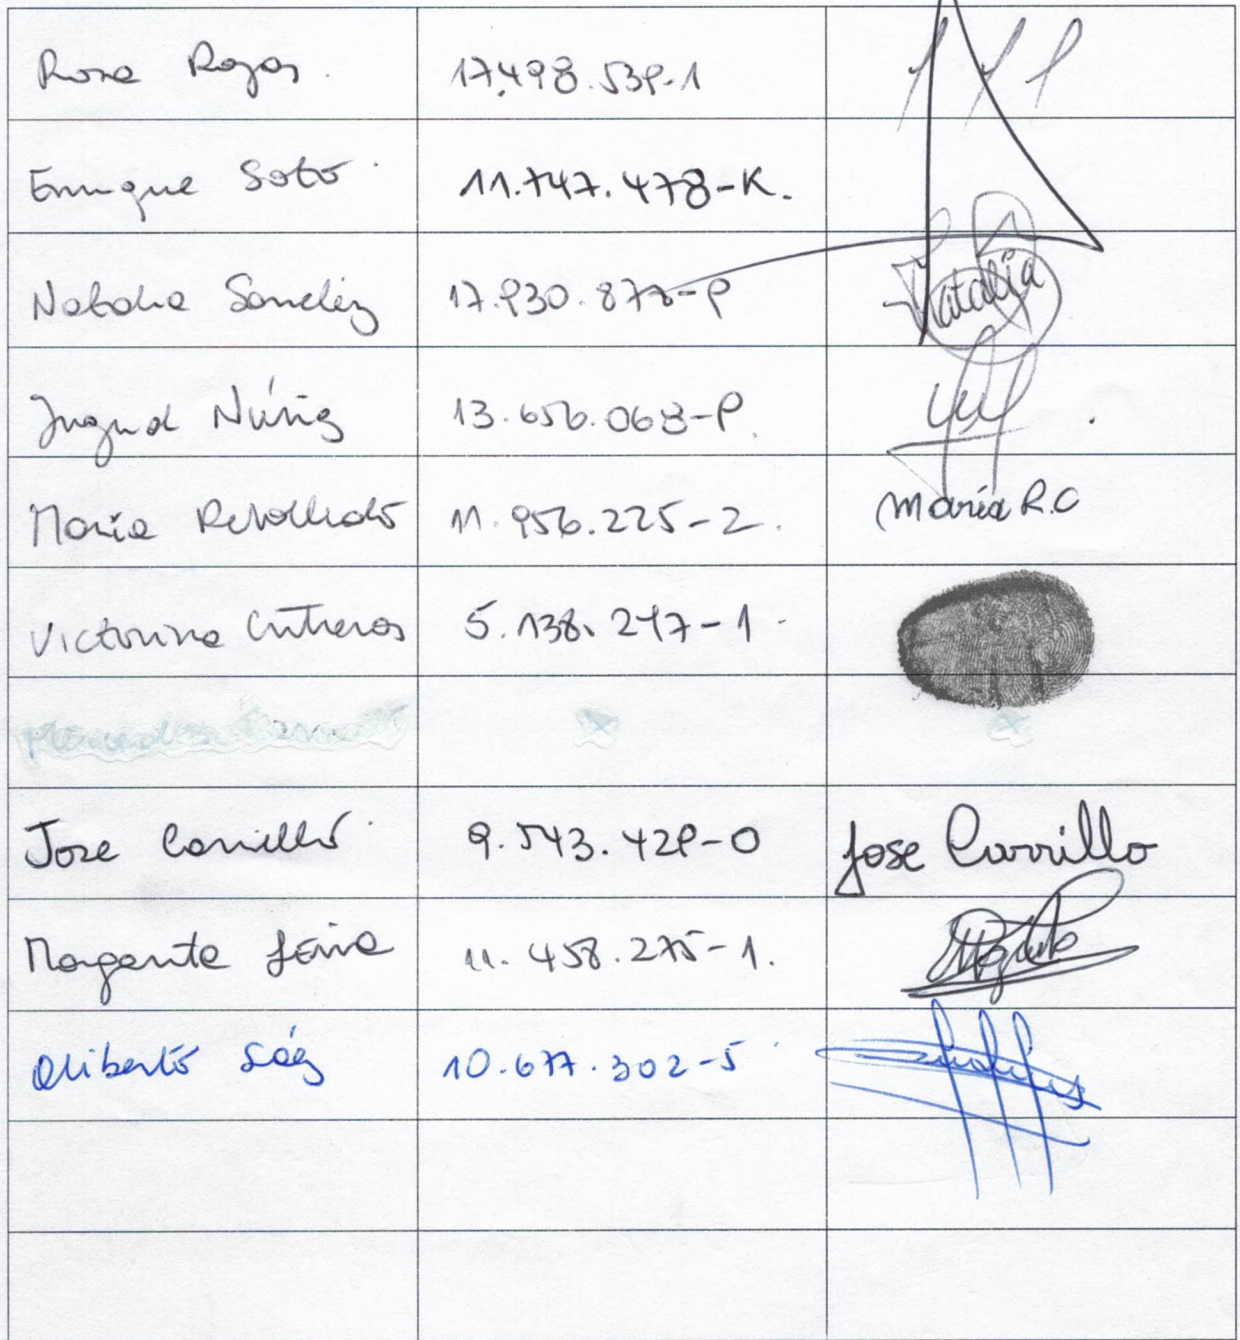 Rosa Rojas 17.498.539-1
Enrique Soto 11.747.478-K.
Natalia Sanchez 17.930.877-9 Natalia
Ingrid Núñez 13.656.068-9
Maria Rebolledo 11.956.225-2. Maria R.C
Victorina Cntreras 5.138.247-1
Jose Carrillo 9.543.429-0 Jose Carrillo
Margarita 11.458.275-1.
Oliberto Sáez 10.677.302-5